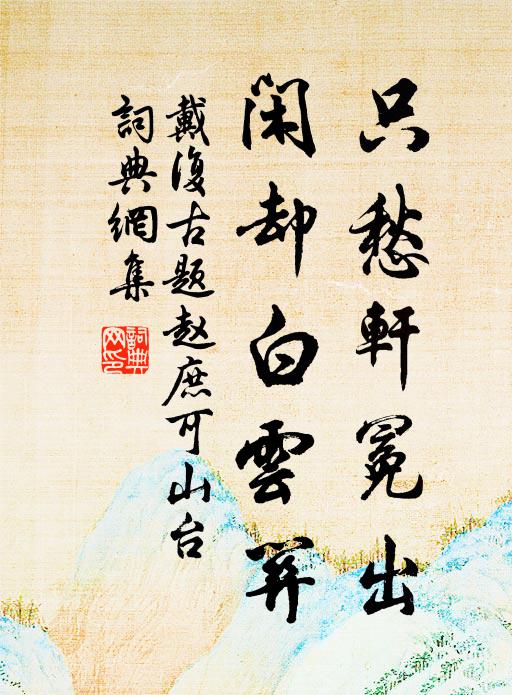 只愁軒冕出
閑却白雲關
戴復古题赵庶可山台
詞典網集
詞典
网印